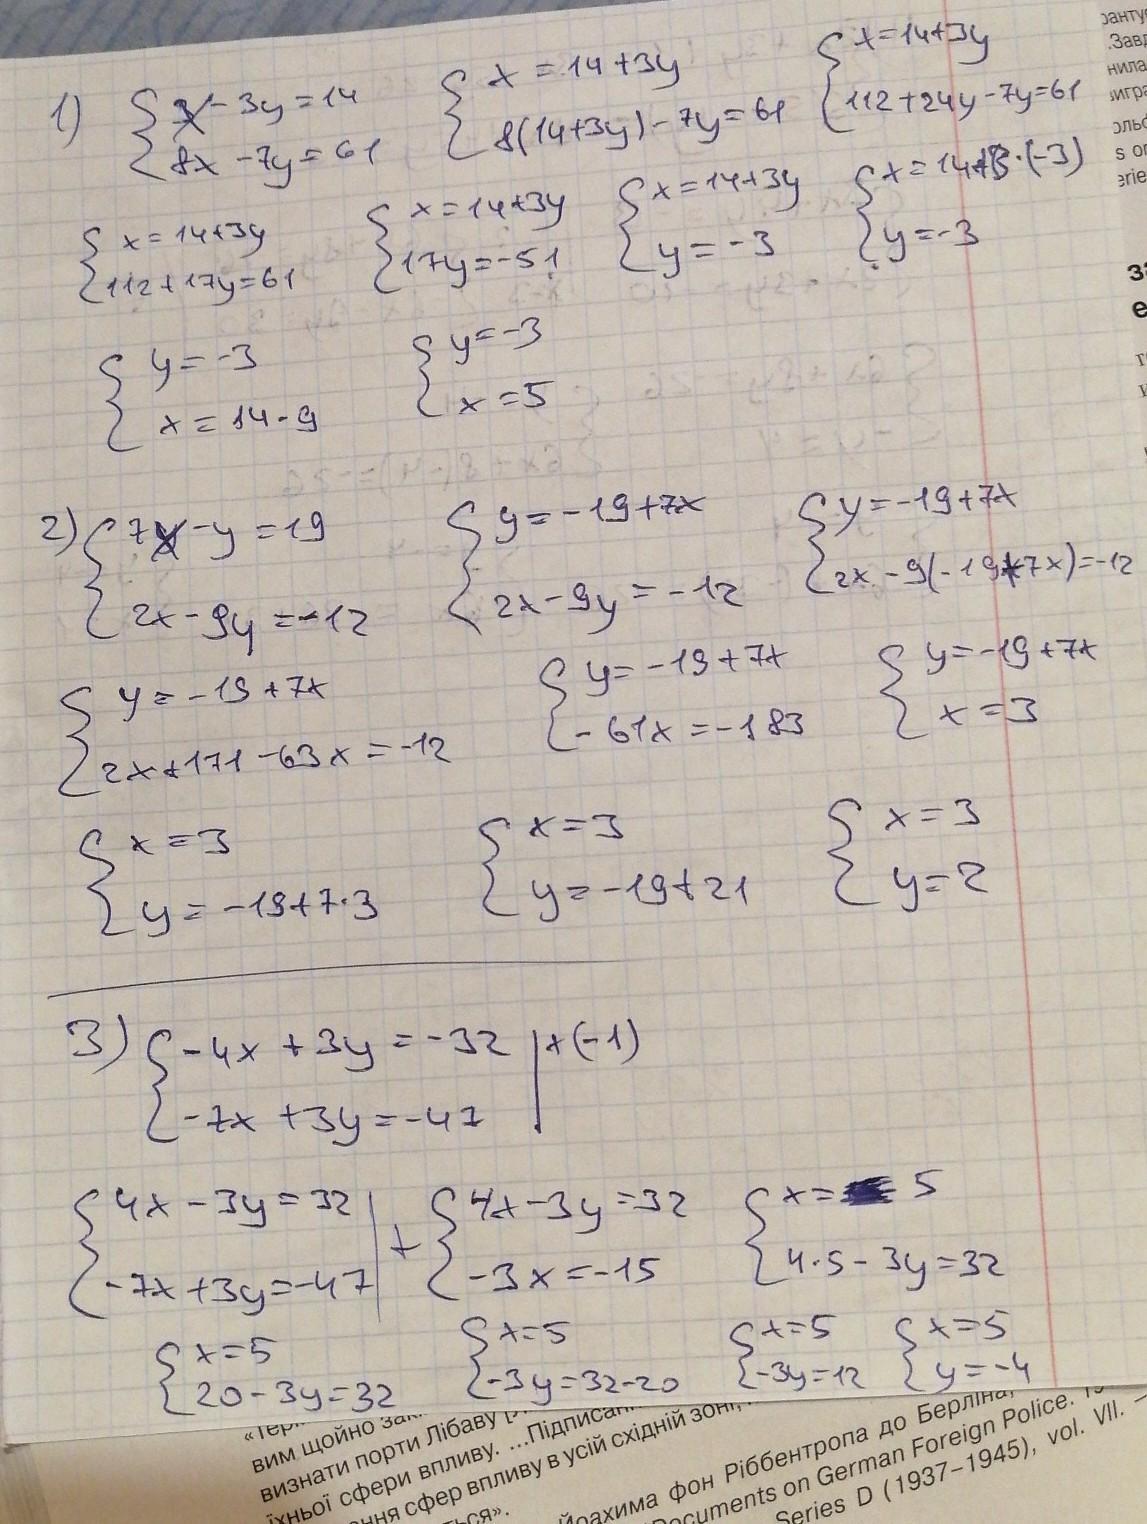 1) { x - 3y = 14
8x - 7y = 61
{ x = 14 + 3y
8(14+3y) - 7y = 61
{ x = 14+3y
112 + 24y - 7y = 61
{ x = 14+3y
112 + 17y = 61
{ x = 14+3y
17y = -51
{ x = 14+3y
y = -3
{ x = 14+3·(-3)
y = -3
{ y = -3
x = 14 - 9
{ y = -3
x = 5
2) { 7x - y = 19
2x - 9y = -12
{ y = -19+7x
2x - 9y = -12
{ y = -19+7x
2x - 9(-19+7x) = -12
{ y = -19+7x
2x + 171 - 63x = -12
{ y = -19+7x
-61x = -183
{ y = -19+7x
x = 3
{ x = 3
y = -19+7·3
{ x = 3
y = -19+21
{ x = 3
y = 2
3) { -4x + 3y = -32 | x(-1)
-7x + 3y = -47
{ 4x - 3y = 32
-7x + 3y = -47 | +
{ 4x - 3y = 32
-3x = -15
{ x = 5
4·5 - 3y = 32
{ x = 5
20 - 3y = 32
{ x = 5
-3y = 32-20
{ x = 5
-3y = 12
{ x = 5
y = -4
вим щойно
визнати порти Лібаву
їхньої сфери впливу. ...Підписан
ння сфер впливу в усій східній зоні,
ться».
Йоахима фон Ріббентропа до Берліна,
Documents on German Foreign Police.
Series D (1937–1945), vol. VII. –